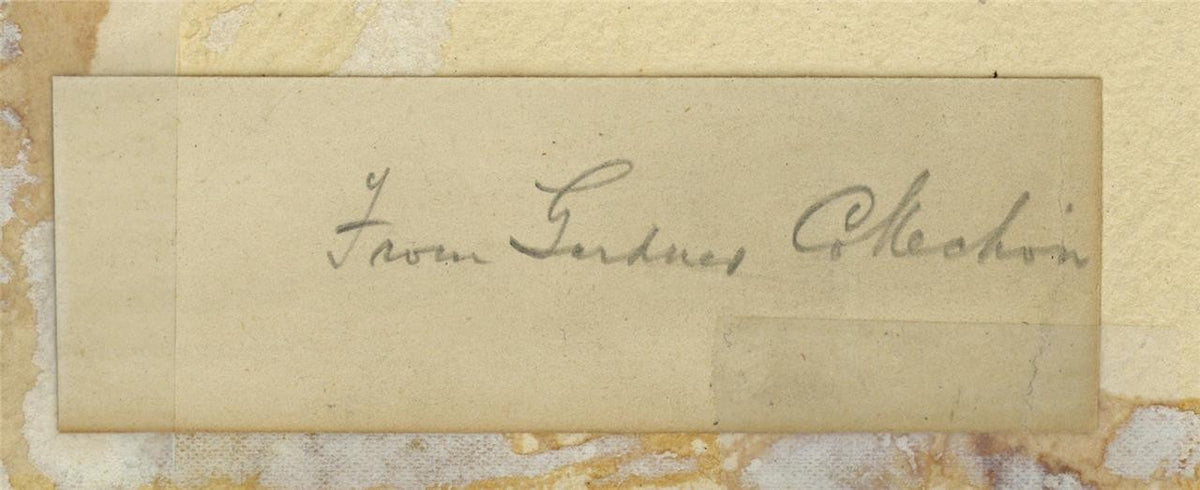 From Gardner Collection